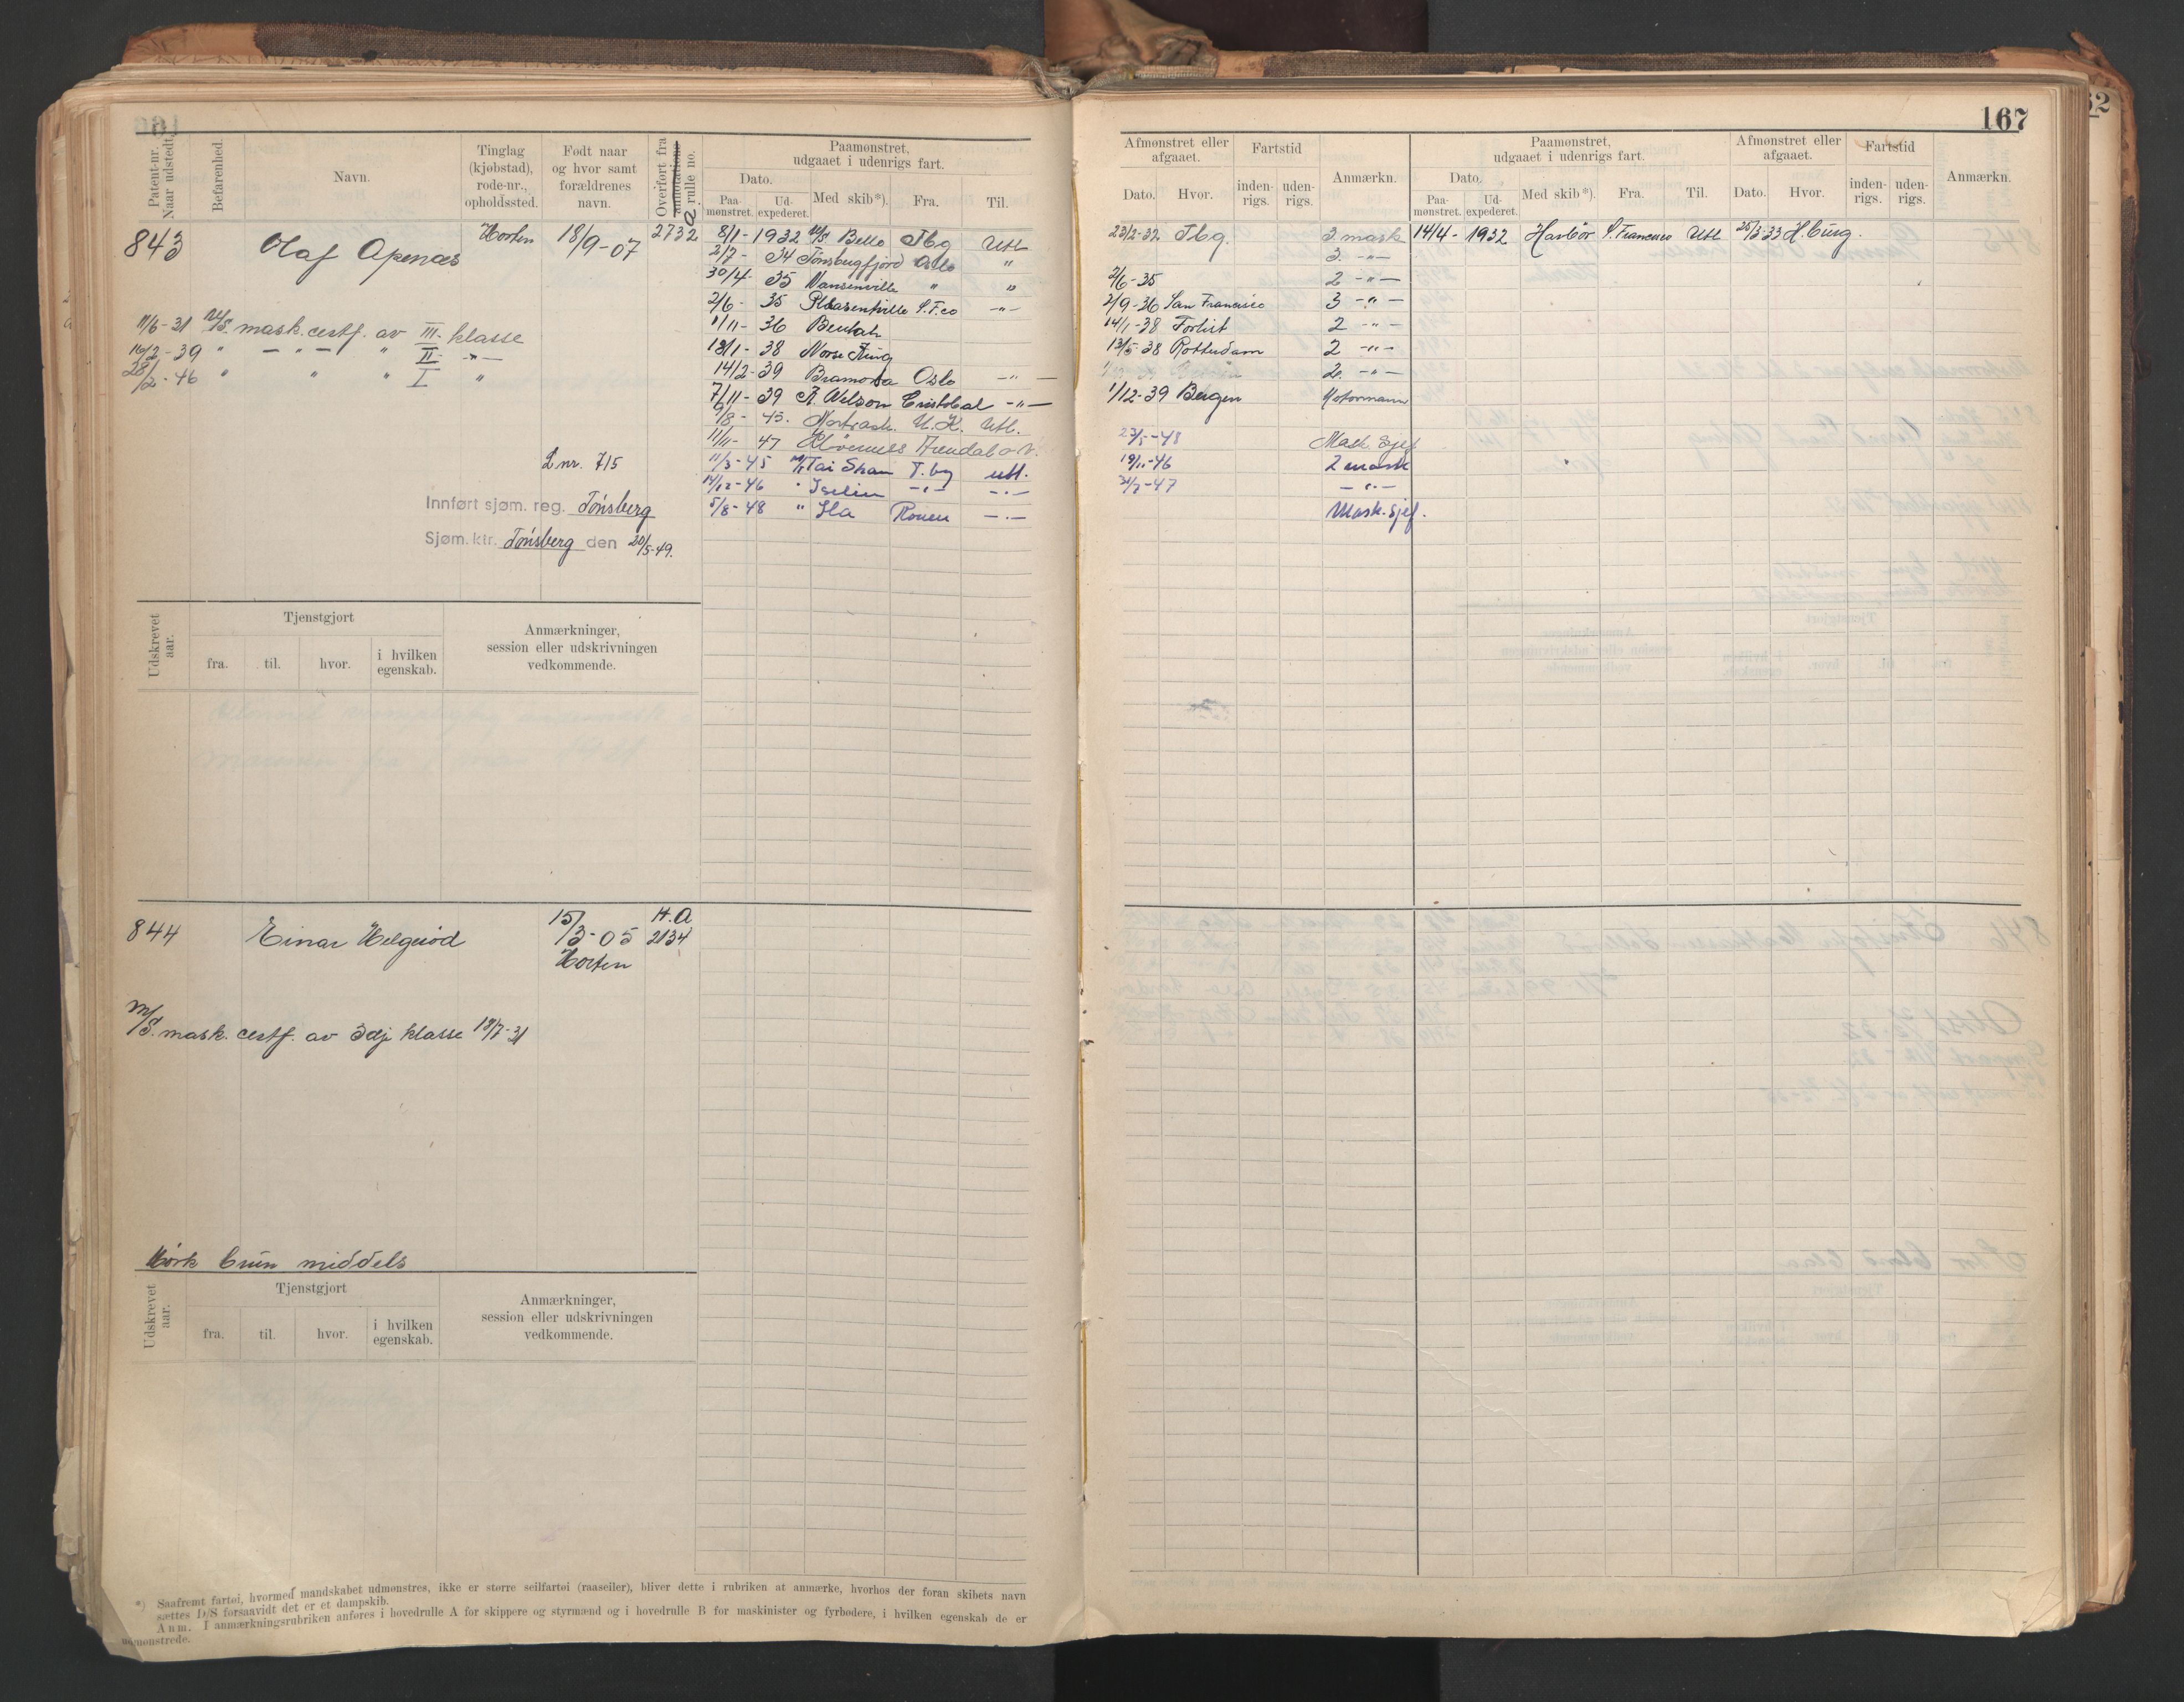 167
Patent-nr. Naar udstedt.
Befarenhed.
Navn.
Tinglag (kjøbstad), rode-nr., opholdssted.
Født naar og hvor samt forældrenes navn.
Overført fra annotations rulle no.
a
Paamønstret, udgaaet i udenrigs fart.
Dato.
Paamønstret.
Udexpederet.
Med skib*).
Fra.
Til.
Afmønstret eller afgaaet.
Dato.
Hvor.
Fartstid
indenrigs.
udenrigs.
Anmærkn.
Paamønstret, udgaaet i udenrigs fart.
Dato.
Paamønstret.
Udexpederet.
Med skib*).
Fra.
Til.
Afmønstret eller afgaaet.
Dato.
Hvor.
Fartstid
indenrigs.
udenrigs.
Anmærkn.
843 Olaf Apenæs Horten 18/9-07 2732
8/1-1932 M/S Bello Tbg Utl 23/2-32 Tbg. 3. mask 14/4-1932 Harbör S. Francisco Utl 25/3-33 H.burg.
2/7-34 Tönsbergfjord Oslo " 3. -"-
30/4-35 Nansenville " " 2/6-35 2 -"-
2/6-35 Pleasentville S.F.co -"- 2/9-36 San Francisco 3 -"-
1/11-36 Beulah 14/1-38 2 -"-
13/1-38 Norse King 13/5-38 Rotterdam 2 -"-
14/2-39 Bramora Oslo -"- 2. -"-
7/11-39 Cristobal -"- 1/12-39 Bergen Motormann
9/8-43. Nortrash. U.K. Utl.
11/11-47 Arendal 27/5-48 Mask. Sjef
11/3-45 M/T Tai Shan T.bg utl. 19/11-46 2 mask
14/12-46 " Iselin -"- -"- 31/7-47 -"-
5/8-48 " Ila Rouen -"- Mask. Sjef.
11/6-31 M/S. mask. certf. av III. klasse
16/2-39 " -"- " II. -"-
28/2-46 " " " I "
L nr. 715
Innført sjøm. reg. Tönsberg
Sjøm. ktr. Tönsberg den 20/5-49.
Udskrevet aar.
Tjenstgjort
fra.
til.
hvor.
i hvilken egenskab.
Anmærkninger, session eller udskrivningen vedkommende.
844 Einar Helgeröd 15/3-05 Horten H.A 2134
M/S. mask. certf. av 3dje klasse 18/7-31
Mörk brun middels
Udskrevet aar.
Tjenstgjort
fra.
til.
hvor.
i hvilken egenskab.
Anmærkninger, session eller udskrivningen vedkommende.
*) Saafremt fartøi, hvormed mandskabet udmønstres, ikke er større seilfartøi (raaseiler), bliver dette i rubriken at anmærke, hvorhos der foran skibets navn
sættes D/S forsaavidt det er et dampskib.
Anm. I anmærkningsrubriken anføres i hovedrulle A for skippere og styrmænd og i hovedrulle B for maskinister og fyrbødere, i hvilken egenskab de er
udmønstrede.